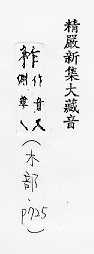 精嚴新集大藏音
作音又
側韋乀
(木部,
P725)